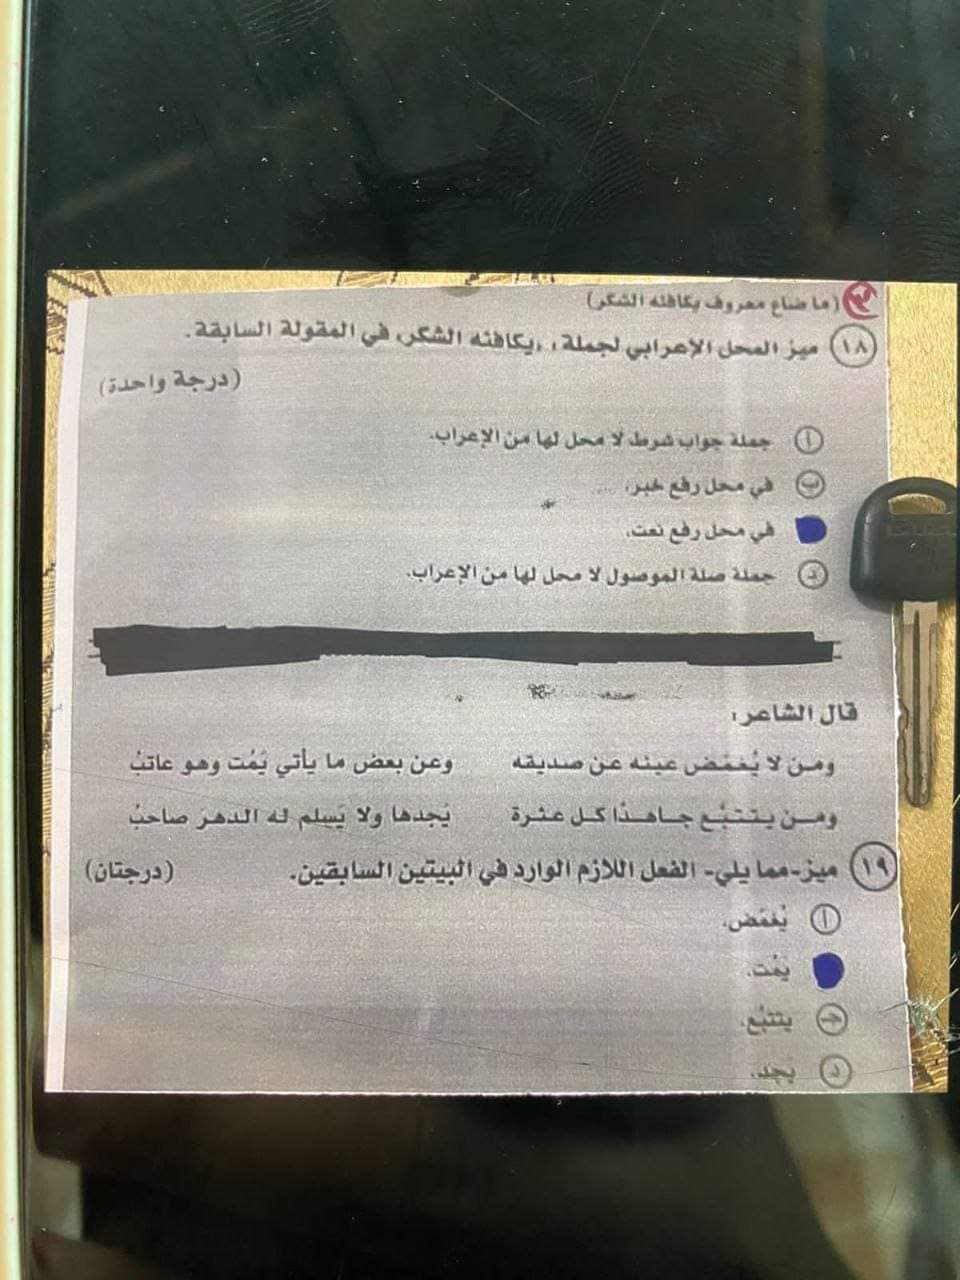 (ما ضاع معروف يكافئه الشكر)
١٨ ميز المحل الإعرابي لجملة، ,يكافئه الشكر، في المقولة السابقة.
(درجة واحدة)
أ جملة جواب شرط لا محل لها من الإعراب.
ب في محل رفع خبر.
في محل رفع نعت.
د جملة صلة الموصول لا محل لها من الإعراب.
قال الشاعر:
ومن لا يُغمّض عينه عن صديقه وعن بعض ما يأتي يَمُت وهو عاتبُ
ومن يتتبّع جاهدًا كل عثرة يَجدها ولا يَسلم له الدهرَ صاحبُ
١٩ ميز-مما يلي- الفعل اللازم الوارد في البيتين السابقين. (درجتان)
أ يُغمّض.
يَمُت.
ج يتتبّع.
د يَجد.